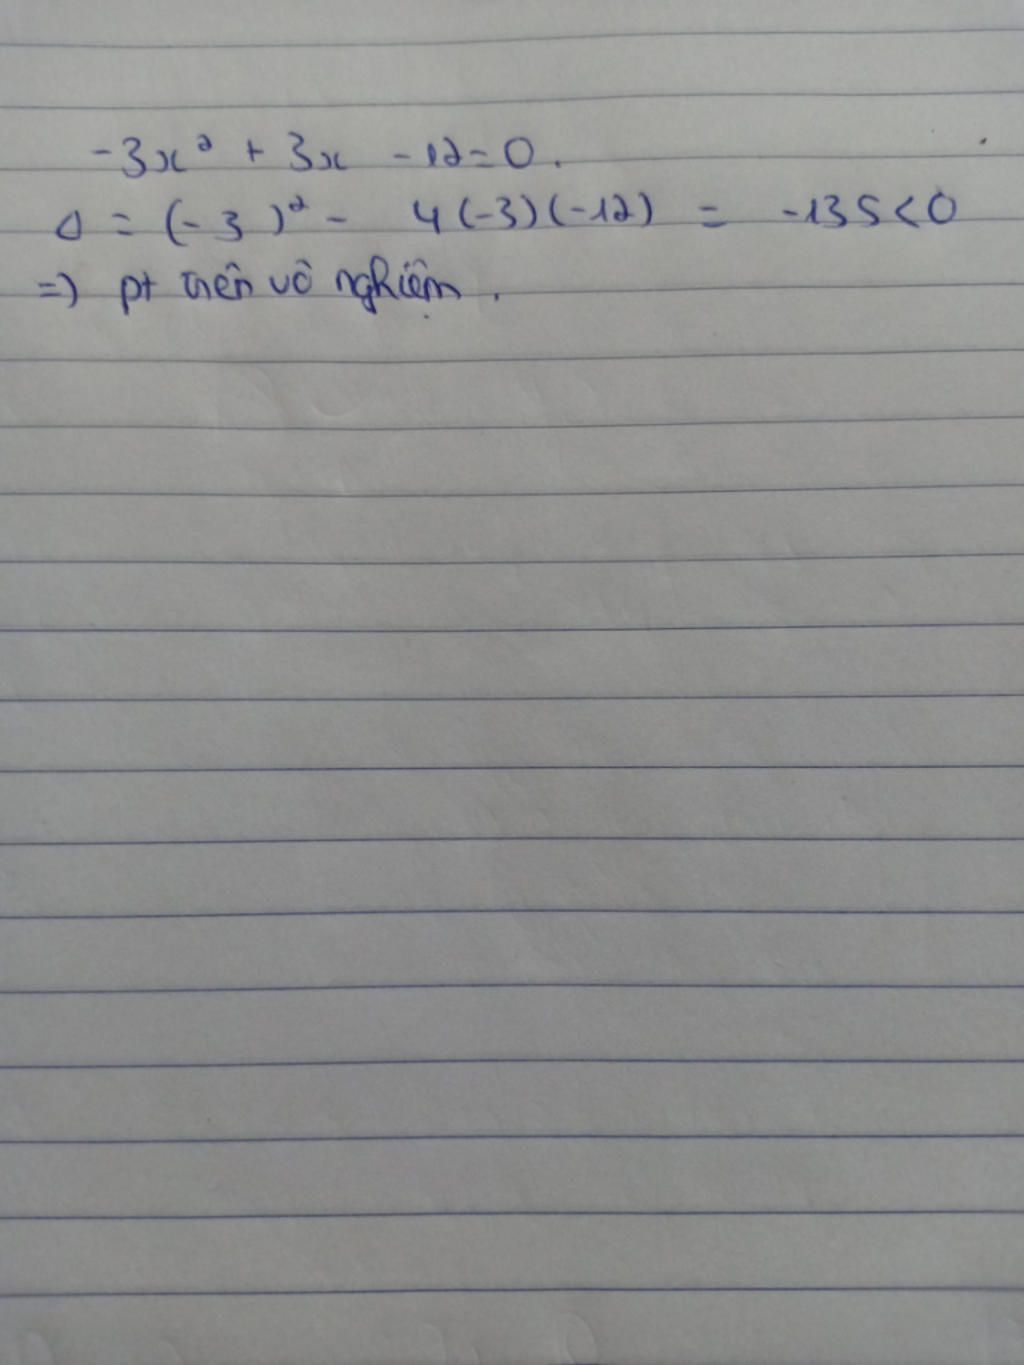 -3x² + 3x - 12 = 0.
Δ = (-3)² - 4(-3)(-12) = -135 < 0
=> pt trên vô nghiệm.